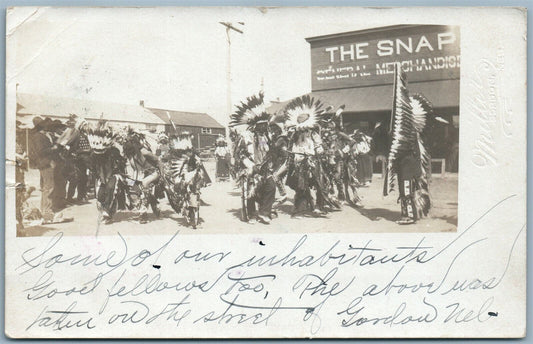 THE SNAP
GENERAL MERCHANDISE
Some of our inhabitants
Good fellows too, The above was
taken on the street of Gordon Neb-